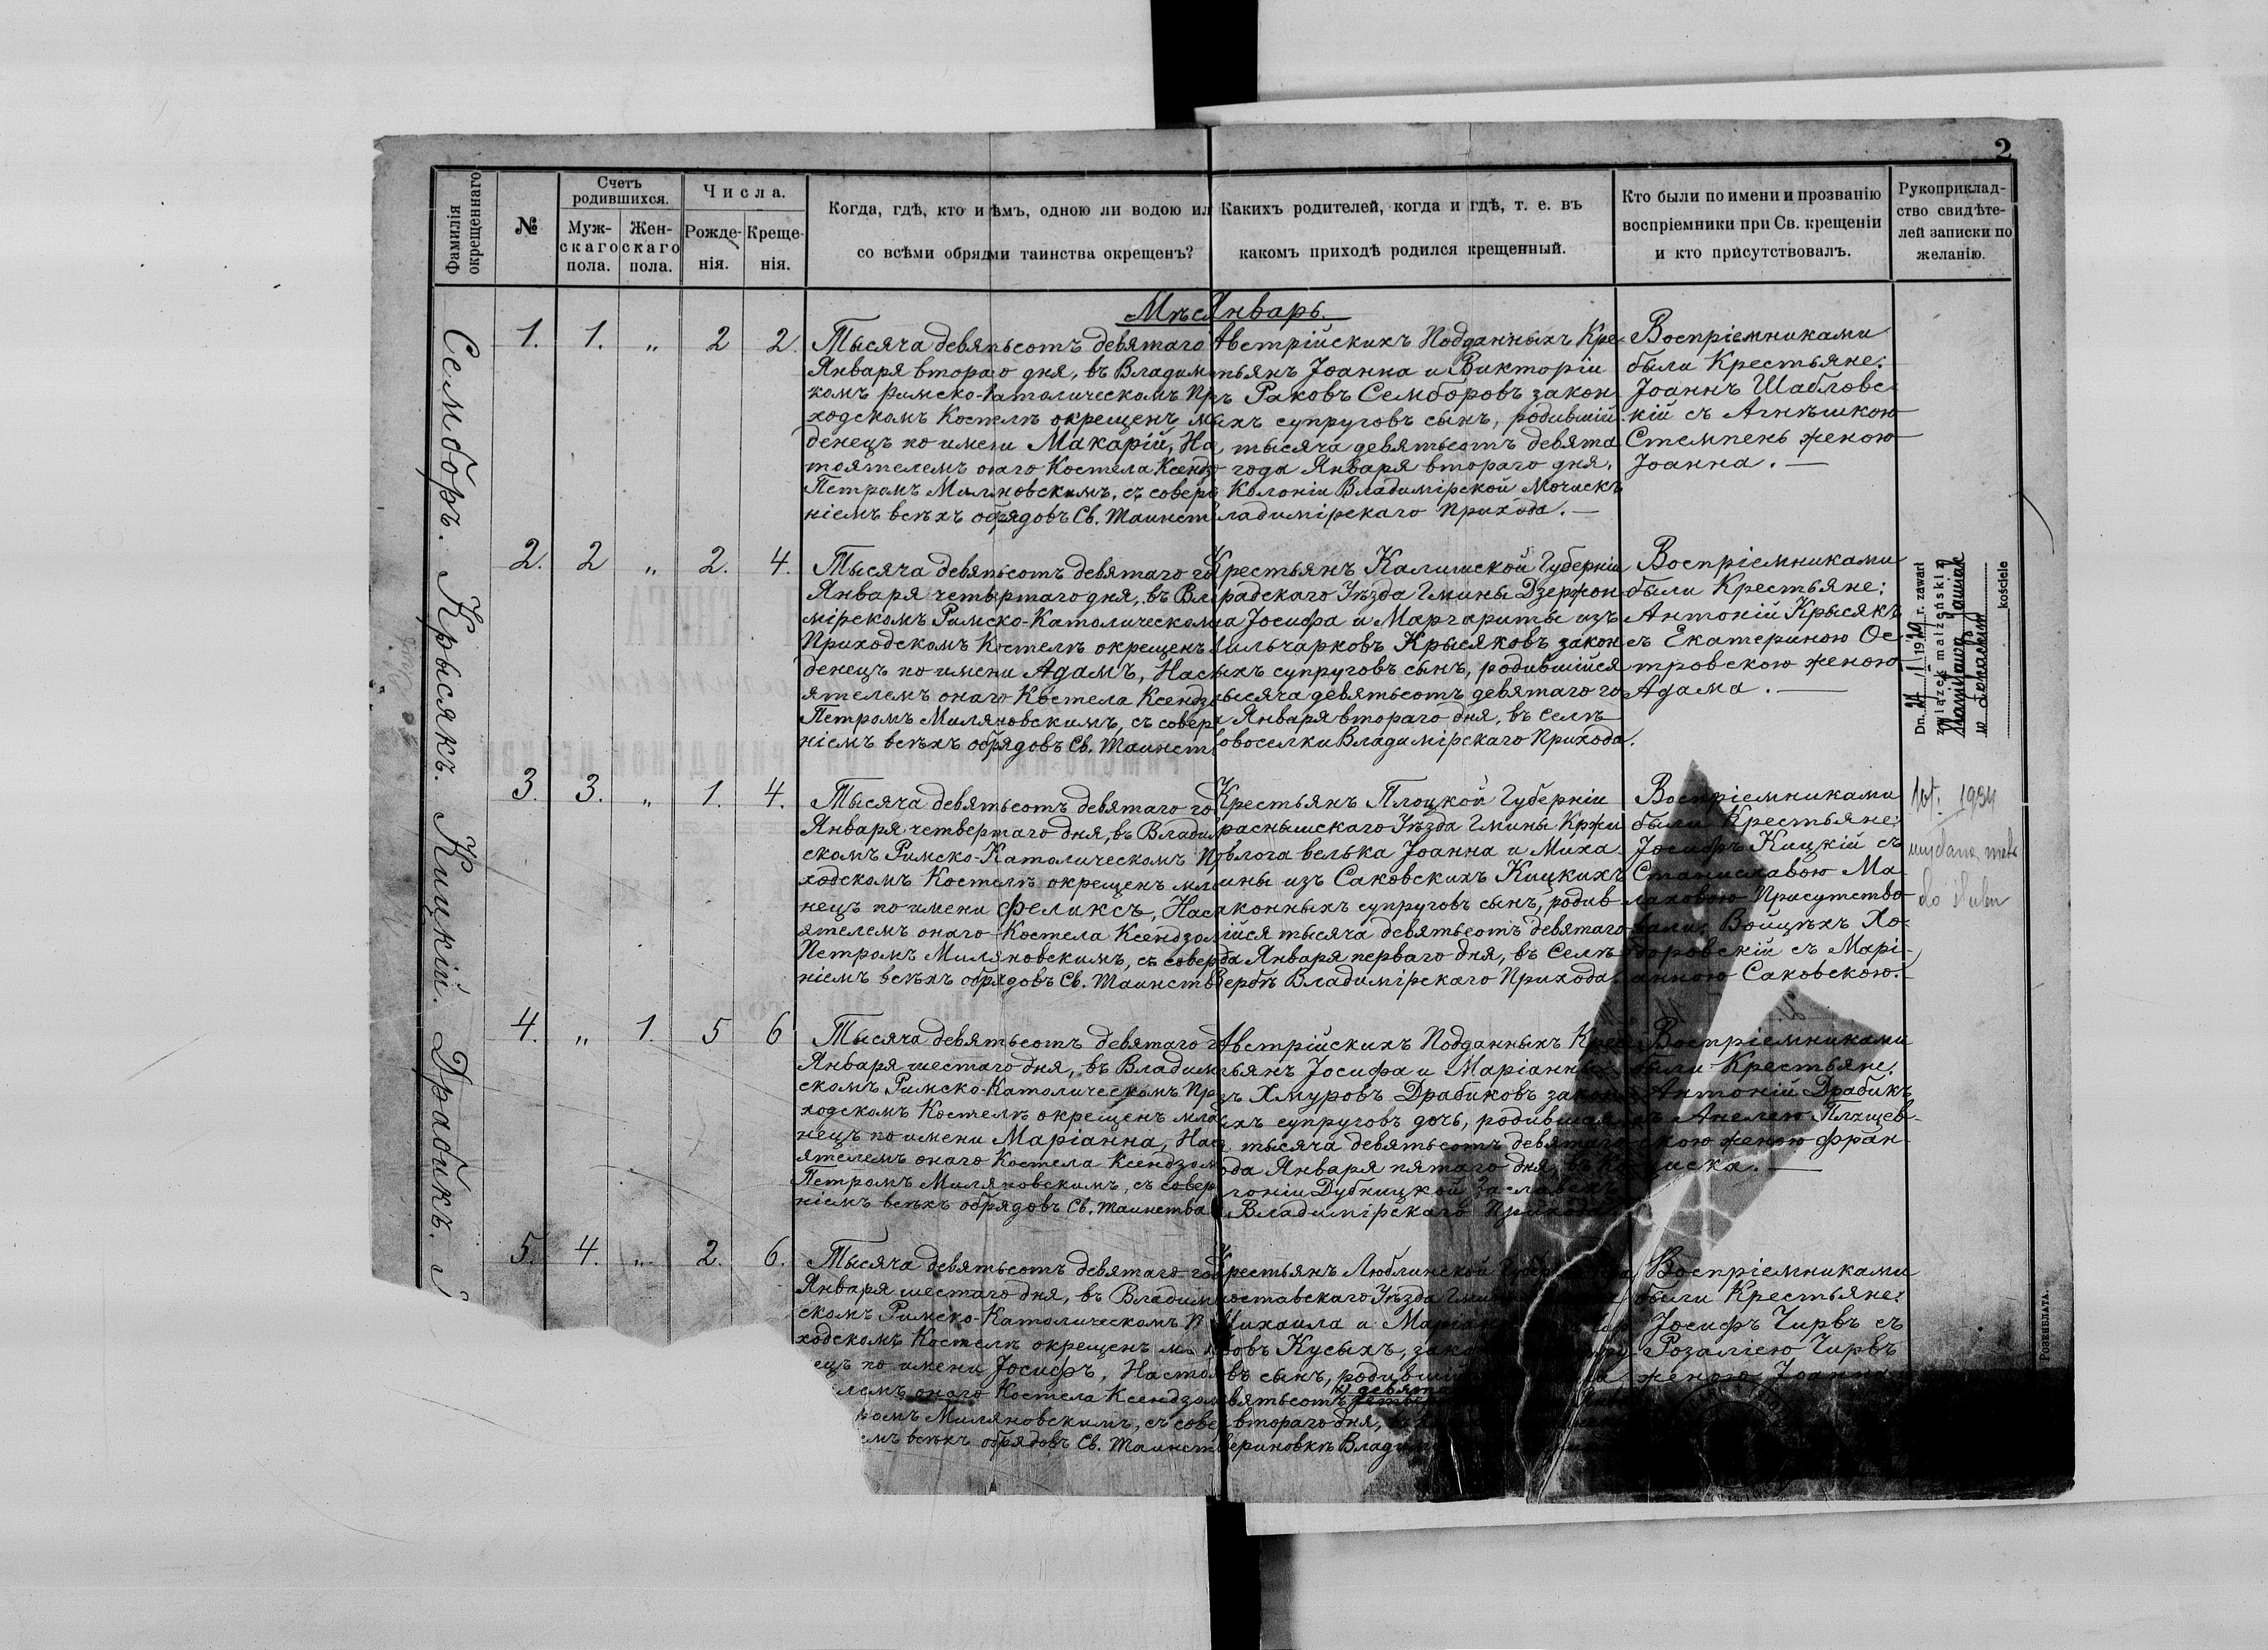 2
Фамилія окрещеннаго
№
Счетъ родившихся.
Муж-скаго пола.
Жен-скаго пола.
Числа.
Рожде-нія.
Креще-нія.
Когда, гдѣ, кто и ѣмъ, одною ли водою ил
со всѣми обрядми таинства окрещенъ?
Какихъ родителей, когда и гдѣ, т. е. въ
какомъ приходѣ родился крещенный.
Кто были по имени и прозванію
воспріемники при Св. крещеніи
и кто присутствовалъ.
Рукоприклад-
ство свидѣте-
лей записки по
желанію.
Мѣс Январь.
Семборъ.
1. 1. „ 2 2.
Тысяча девятьсотъ девятаго
Января втораго дня, въ Владим
комъ Римско-Католическомъ Пр
ходскомъ Костелѣ окрещенъ м
денецъ по имени Макарій, На
тоятелемъ онаго Костела Ксендз
Петромъ Миляновскимъ, съ совер
ніемъ всѣхъ обрядовъ Св. Таинст
Австрійскихъ Подданныхъ Кре
тьянъ Іоанна и Викторіи
ъ Раковъ Семборовъ закон
ыхъ супруговъ сынъ, родившій
тысяча девятьсотъ девята
года Января втораго дня,
Колоніи Владимірской Мочискъ
ладимірскаго Прихода. —
Воспріемниками
были Крестьяне:
Іоаннъ Шабловс
кій съ Агнѣшкою
Стемпень женою
Іоанна. —
Крысякъ.
2. 2 „ 2. 4.
Тысяча девятьсотъ девятаго го
Января четвертаго дня, въ Вла
мірскомъ Римско-Католическом
Приходскомъ Костелѣ окрещенъ
денецъ по имени Адамъ, Нас
ятелемъ онаго Костела Ксендз
Петромъ Миляновскимъ, съ совер
ніемъ всѣхъ обрядовъ Св. Таинст
Крестьянъ Калишской Губерніи
радскаго Уѣзда Гмины Дзержон
а Іосифа и Маргариты изъ
ильчарковъ Крысяковъ закон
ыхъ супруговъ сынъ, родившійся
тысяча девятьсотъ девятаго го
Января втораго дня, въ Селѣ
овоселки Владимірскаго Прихода.
Воспріемниками
были Крестьяне:
Антоній Крысякъ
съ Екатериною Ос
тровскою женою
Адама. —
Dn. 24 II 1929 r. zawarł
związek małżeński z
Stanisławą Jawiak
w
kościele
Кицкій.
3. 3. „ 1. 4.
Тысяча девятьсотъ девятаго го
Января четвертаго дня, въ Влади
скомъ Римско-Католическомъ П
ходскомъ Костелѣ окрещенъ мл
нецъ по имени Феликсъ, Нас
ятелемъ онаго Костела Ксендзо
Петромъ Миляновскимъ, съ совер
ніемъ всѣхъ обрядовъ Св. Таинств
Крестьянъ Плоцкой Губерніи
раснышскаго Уѣзда Гмины Кржи
овлога велька Іоанна и Миха
ины изъ Саковскихъ Кицкихъ
аконныхъ супруговъ сынъ, родив
ійся тысяча девятьсотъ девятаго
да Января перваго дня, въ Селѣ
Вербѣ Владимірскаго Прихода.
Воспріемниками
были Крестьяне:
Іосифъ Кицкій съ
Станиславою Ма
лаховою Присутство
вали: Войцѣхъ Хо
боровскій съ Марі
анною Саковскою.
1934
wydano metr
do ślubu
Драбикъ.
4. „ 1. 5 6
Тысяча девятьсотъ девятаго г
Января шестаго дня, въ Владим
скомъ Римско-Католическомъ Пр
ходскомъ Костелѣ окрещенъ мла
нецъ по имени Маріанна, Нас
ятелемъ онаго Костела Ксендзом
Петромъ Миляновскимъ, съ совер
ніемъ всѣхъ обрядовъ Св. Таинства
Австрійскихъ Подданныхъ Крес
тьянъ Іосифа и Маріанны
зъ Хмуровъ Драбиковъ закон
ыхъ супруговъ дочь, родившая
тысяча девятьсотъ девятаго
ода Января пятаго дня, въ Ко
лоніи Дубницкой Заславск
Владимірскаго Прихода
Воспріемниками
были Крестьяне:
Антоній Драбикъ
съ Анелею Плащев
скою женою Фран
циска. —
5. 4. „ 2. 6.
Тысяча девятьсотъ девятаго год
Января шестаго дня, въ Владим
скомъ Римско-Католическомъ П
ходскомъ Костелѣ окрещенъ мл
ецъ по имени Іосифъ, Насто
лемъ онаго Костела Ксендзом
ромъ Миляновскимъ, съ сове
емъ всѣхъ обрядовъ Св. Таинст
Крестьянъ Люблинской Губер
оставскаго Уѣзда Гмин
Михаила и Маріан
овъ Кусыхъ, зако
въ сынъ, родивші
девята
вятьсотъ
втораго дня, въ
вериновкѣ Влади
Воспріемниками
были Крестьяне:
Іосифъ Чирвъ съ
Розаліею Чирвъ
женою Іоанна
РОЗЕНБЛАТА.